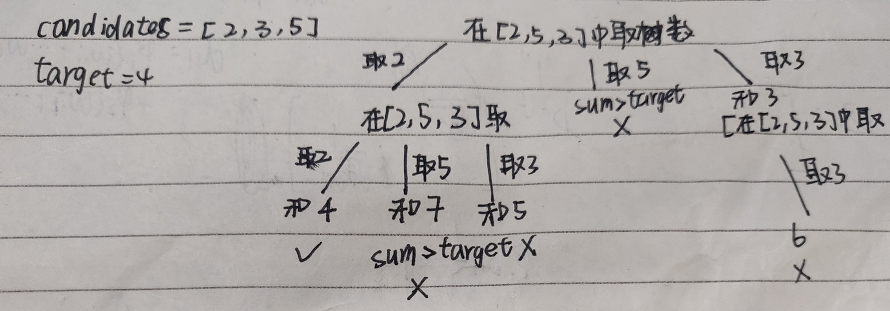 candidates = [2,3,5]
target=4
在[2,5,3]中取数
取2
取5
取3
sum>target
X
和3
[在[2,5,3]中取
在[2,5,3]取
取2
取5
取3
取3
和4
和7
和5
6
✓
sum>target X
X
X